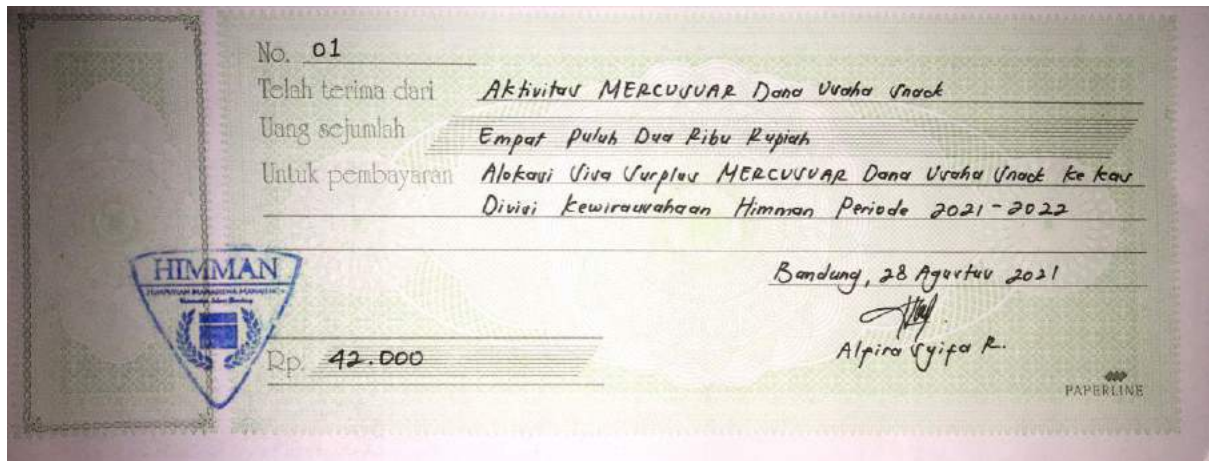 No. 01
Telah terima dari Aktivitas MERCUSUAR Dana Usaha Snack
Uang sejumlah Empat Puluh Dua Ribu Rupiah
Untuk pembayaran Alokasi Sisa Surplus MERCUSUAR Dana Usaha Snack ke kas
Divisi Kewirausahaan Himman Periode 2021-2022
Bandung, 28 Agustus 2021
HIMMAN
HIMPUNAN MAHASISWA MANAJEMEN
Rp. 42.000
Alpira Syifa R.
PAPERLINE